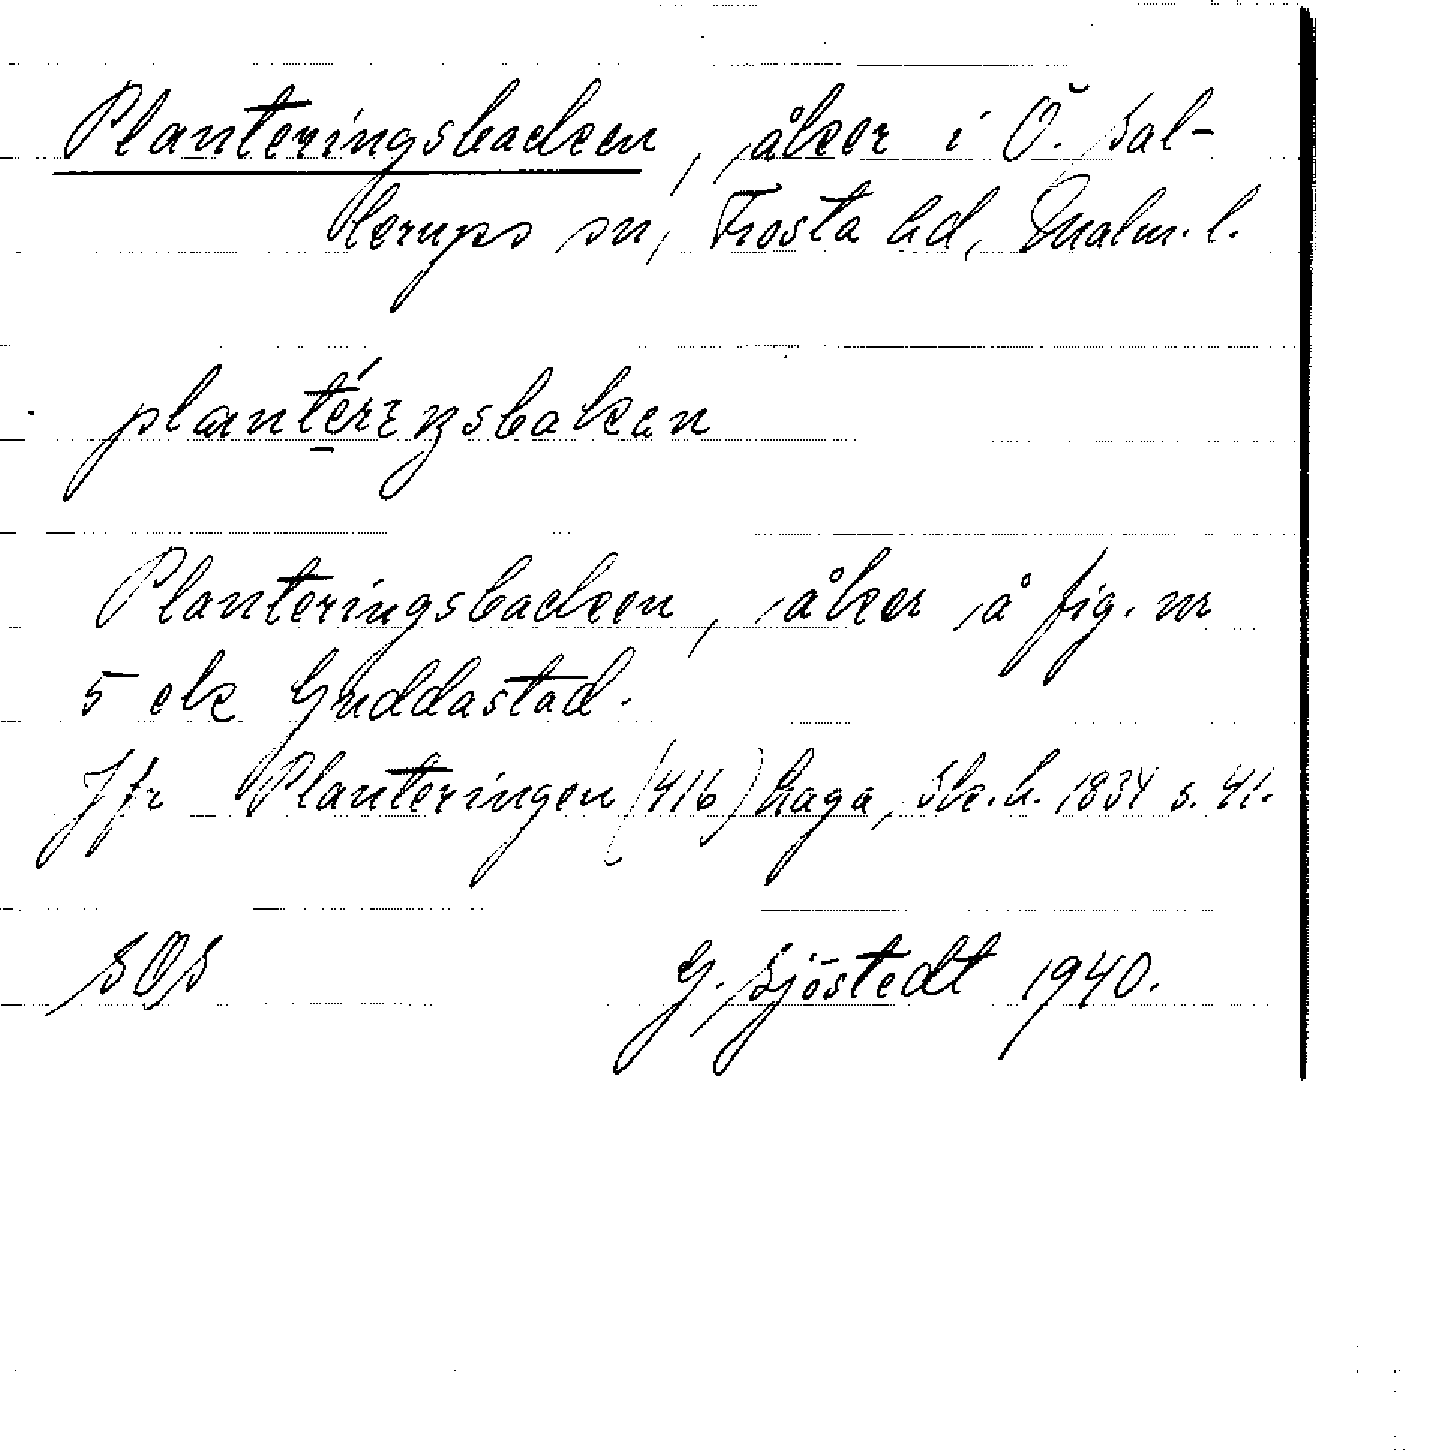 Planteringsbacken, åker i Ö. Sal-
lerups sn, Frosta hd, Malm. l.
plantérıŋsbakan
Planteringsbacken, åker å fig. nr
5 ek Guddastad.
Jfr Planteringen (416) haga, Sk. h. 1834 s. 41.
SOS G. Sjöstedt 1940.